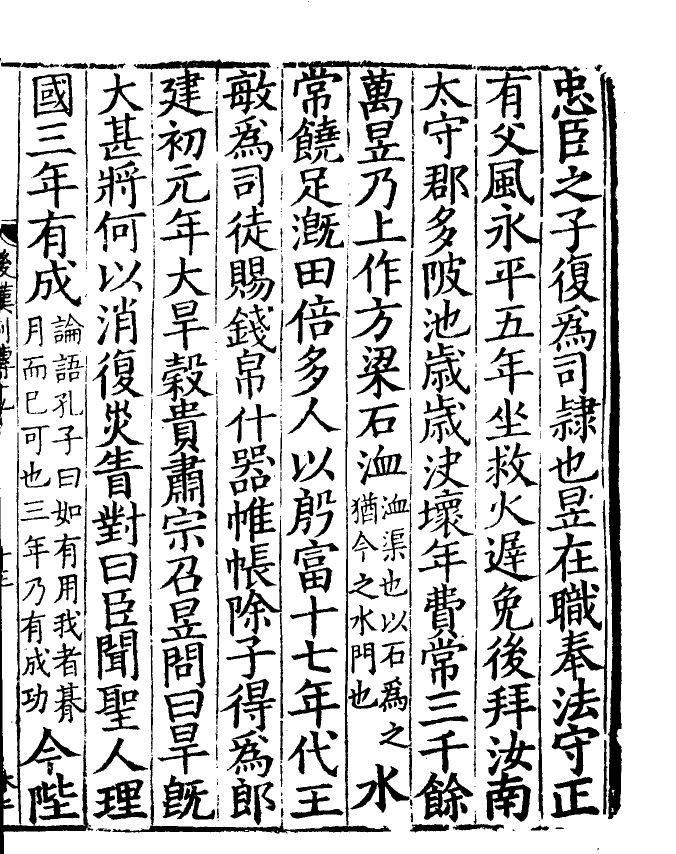 忠臣之子復爲司隷也昱在職奉法守正
有父風永平五年坐救火遲免後拜汝南
太守郡多陂池歳歳決壞年費常三千餘
萬昱乃上作方梁石洫洫渠也以石爲之猶今之水門也水
常饒足漑田倍多人以殷富十七年代王
敏爲司徒賜錢帛什器帷帳除子得爲郎
建初元年大旱穀貴肅宗召昱問曰旱旣
大甚將何以消復災眚對曰臣聞聖人理
國三年有成論語孔子曰如有用我者朞月而已可也三年乃有成功今陛
後漢列傳十九
十三